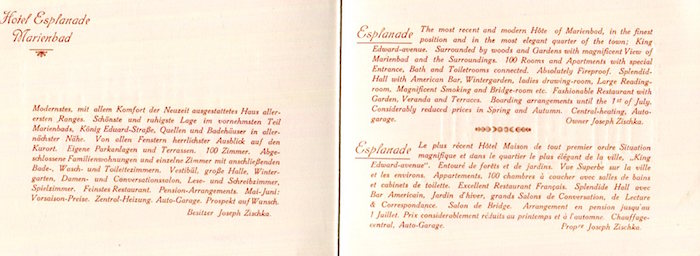 Hotel Esplanade
Marienbad
Modernstes, mit allem Komfort der Neuzeit ausgestattetes Haus aller-
ersten Ranges. Schönste und ruhigste Lage im vornehmsten Teil
Marienbads, König Eduard-Straße, Quellen und Badehäuser in aller-
nächster Nähe. Von allen Fenstern herrlichster Ausblick auf den
Kurort. Eigene Parkanlagen und Terrassen. 100 Zimmer. Abge-
schlossene Familienwohnungen und einzelne Zimmer mit anschließenden
Bade-, Wasch- und Toilettezimmern. Vestibül, große Halle, Winter-
garten, Damen- und Conversationssalon, Lese- und Schreibzimmer,
Spielzimmer. Feinstes Restaurant. Pension-Arrangements. Mai-Juni:
Vorsaison-Preise. Zentral-Heizung. Auto-Garage. Prospekt auf Wunsch.
Besitzer Joseph Zischka.
Esplanade The most recent and modern Hôte of Marienbod, in the finest
position and in the most elegant quarter of the town; King
Edward-avenue. Surrounded by woods and Gardens with magnificent View of
Marienbod and the Surroundings. 100 Rooms and Apartments with special
Entrance, Bath and Toiletrooms connected. Absolutely Fireproof. Splendid-
Hall with American Bar, Wintergarden, ladies drawing-room, Large Reading-
room, Magnificent Smoking and Bridge-room etc. Fashionable Restaurant with
Garden, Veranda and Terraces. Boarding arrangements until the 1st of July.
Considerably reduced prices in Spring and Autumn. Central-heating, Auto-
garage. Owner Joseph Zischka.
Esplanade Le plus récent Hôtel Maison de tout premier ordre Situation
magnifique et dans le quartier le plus élégant de la ville, „King
Edward-avenue“. Entouré de forêts et de jardins. Vue Superbe sur la ville
et les environs. Appartements, 100 chambres à coucher avec salles de bains
et cabinets de toilette. Excellent Restaurant Français. Splendide Hall avec
Bar Américain, Jardin d'hiver, grands Salons de Conversation, de Lecture
& Correspondance. Salon de Bridge. Arrangement en pension jusqu'au
1 Juillet. Prix considerablement réduits au printemps et à l'automne. Chauffage-
central, Auto-Garage. Propre Joseph Zischka.